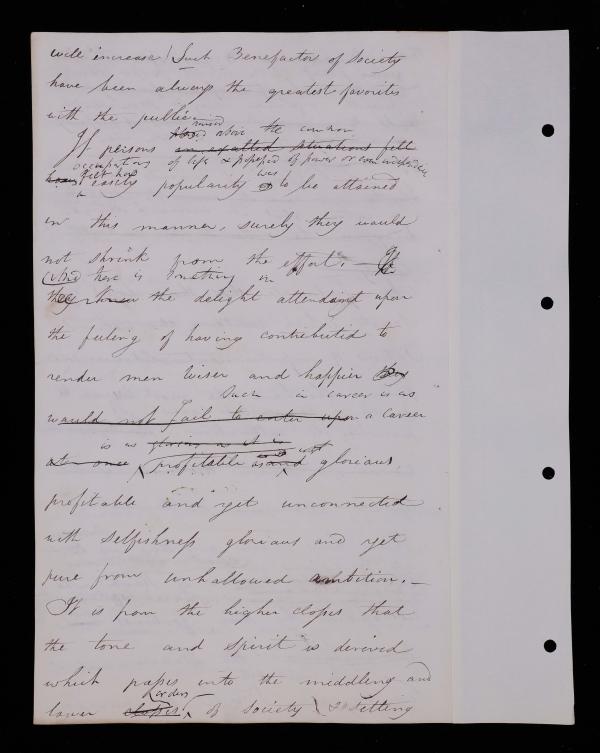 will increase! Such Benefactors of Society
have been always the greatest favorites
with the public
raised above the common
If persons in exalted situations felt
occupations of life & possessed of power or
felt how was
easily popularity is to be attained
in this manner, surely they would
not shrink from the effort. — If
(And there is something in
they knew the delight attendant upon
the feeling of having contributed to
render men wiser and happier they
Such a career is as
would not fail to enter upon a career
is as glorious as it is
at once profitable as and glorious
profitable and yet unconnected
with selfishness glorious and yet
pure from unhallowed ambition. —
It is from the higher classes that
the tone and spirit is derived
which passes into the middling and
orders
lower classes of Society